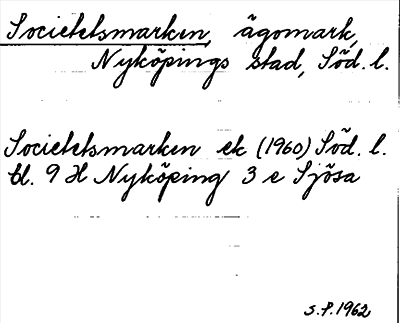 Societetsmarken, ägomark,
Nyköpings stad, Söd. l.
Societetsmarken ek (1960) Söd. l.
bl. 9 H Nyköping 3 e Sjösa
S.P. 1962